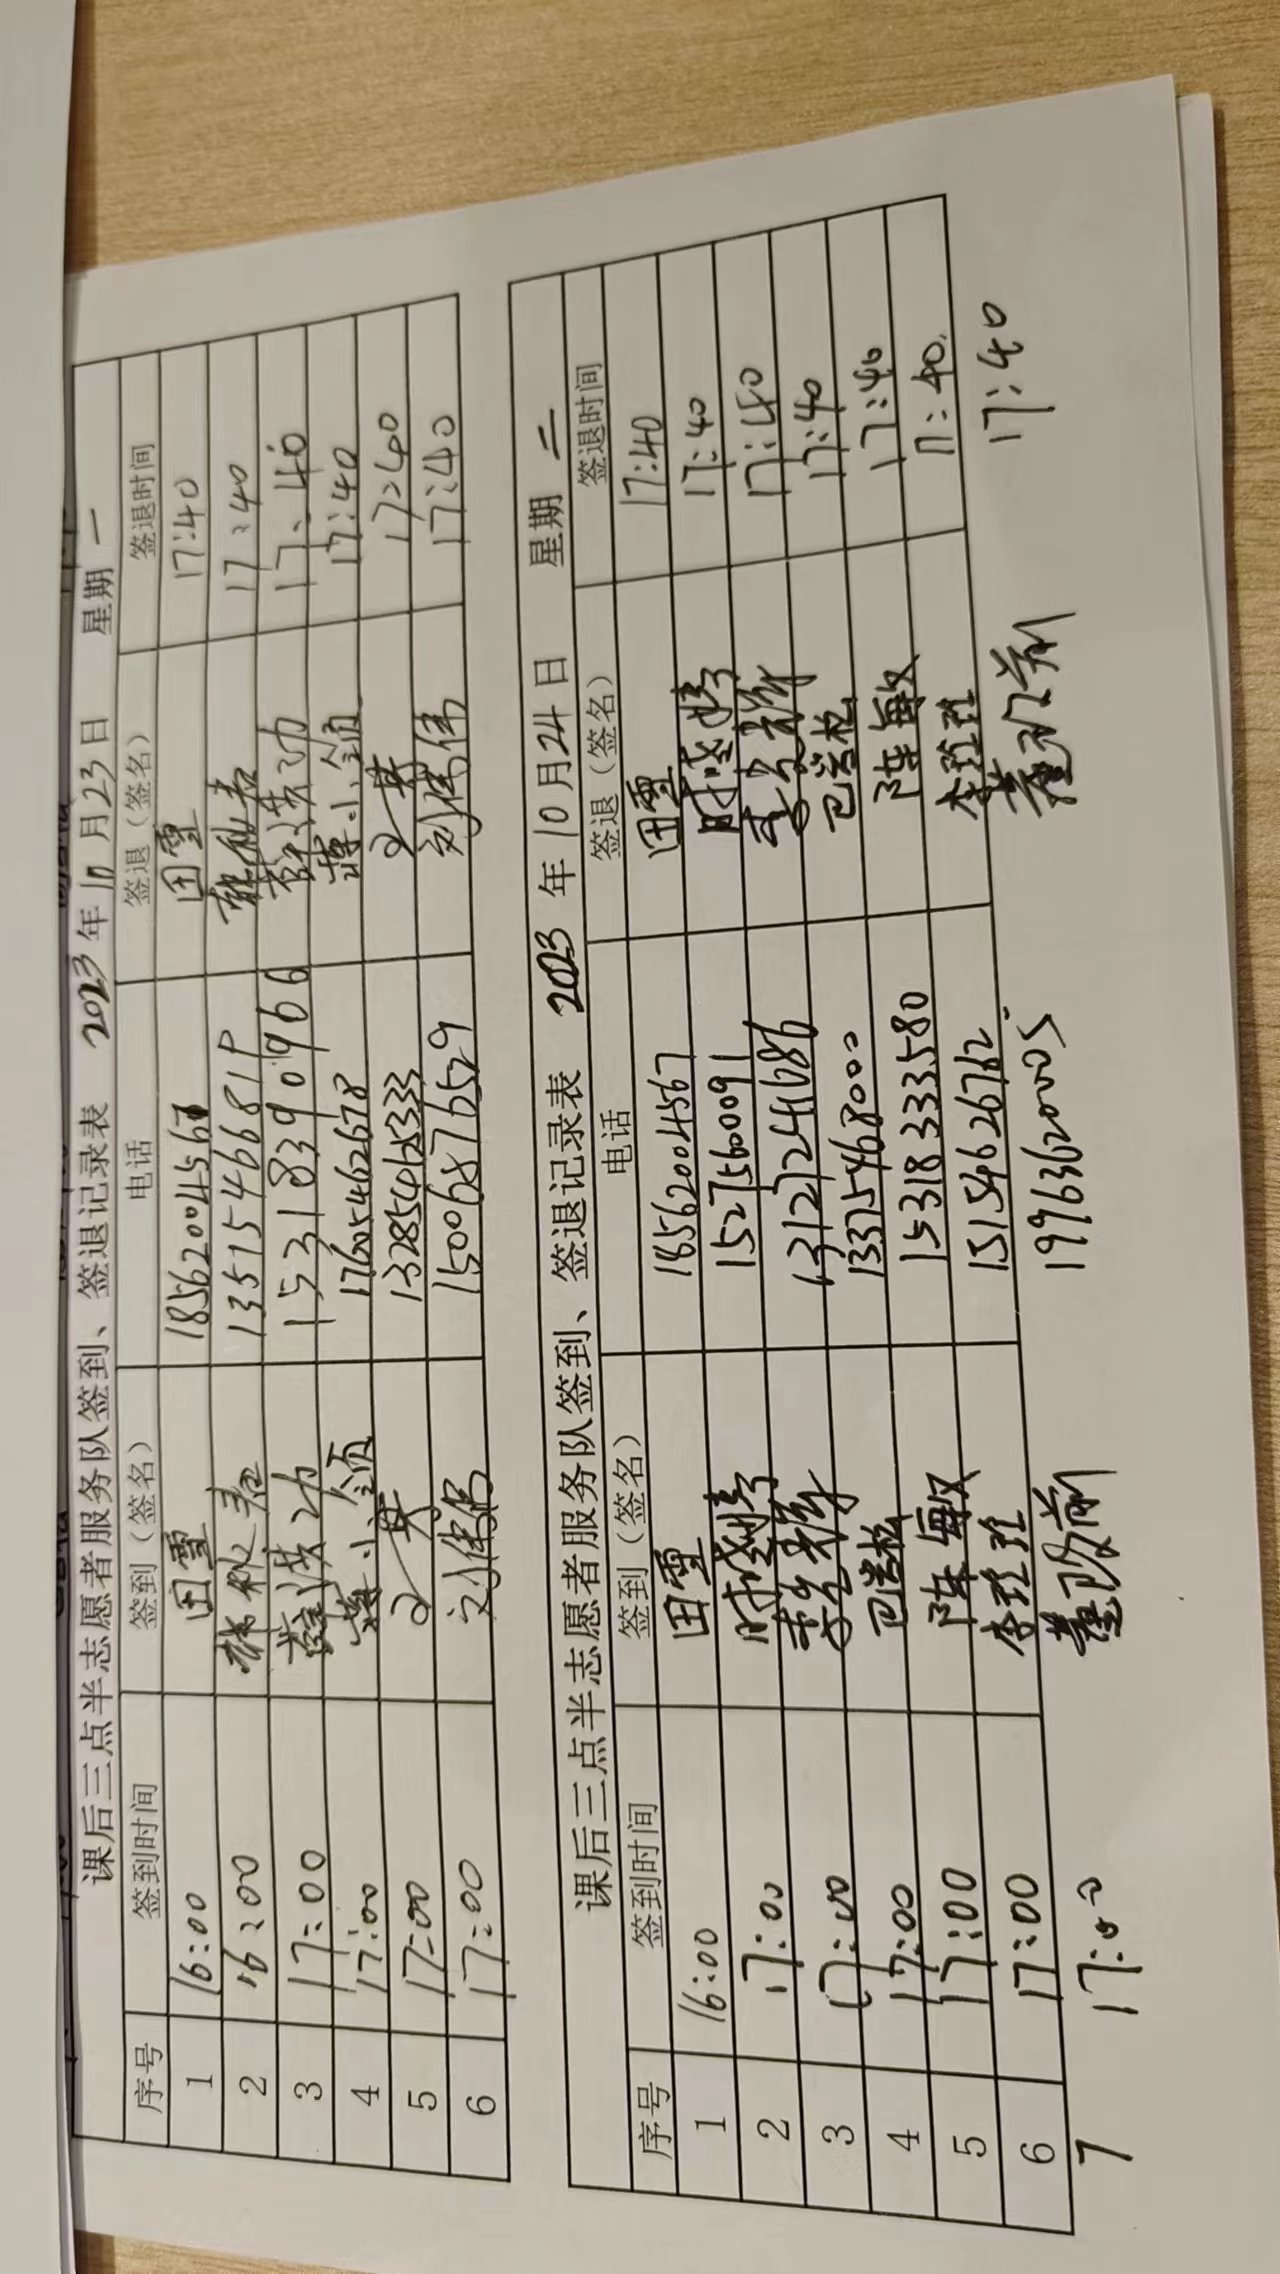 课后三点半志愿者服务队签到、签退记录表 2023年10月23日 星期一
序号 签到时间 签到（签名） 电话 签退（签名） 签退时间
1 16:00 田雪 18562004567 田雪 17:40
2 16:00 13515466819 17:40
3 17:00 薛洪功 15318390966 薛洪功 17:40
4 17:00 蒋小领 17605462678 蒋小领 17:40
5 17:00 13285465333 17:40
6 17:00 刘伟伟 15006876529 刘伟伟 17:40
课后三点半志愿者服务队签到、签退记录表 2023年10月24日 星期二
序号 签到时间 签到（签名） 电话 签退（签名） 签退时间
1 16:00 田雪 18562004567 田雪 17:40
2 17:00 时婷婷 15275600091 时婷婷 17:40
3 17:00 13127241686 17:40
4 17:00 巴岩松 13375468000 巴岩松 17:40
5 17:00 陈敏 15318333580 陈敏 17:40
6 17:00 李玲玲 15154626762 李玲玲 17:40
7 17:00 19963620005 17:40